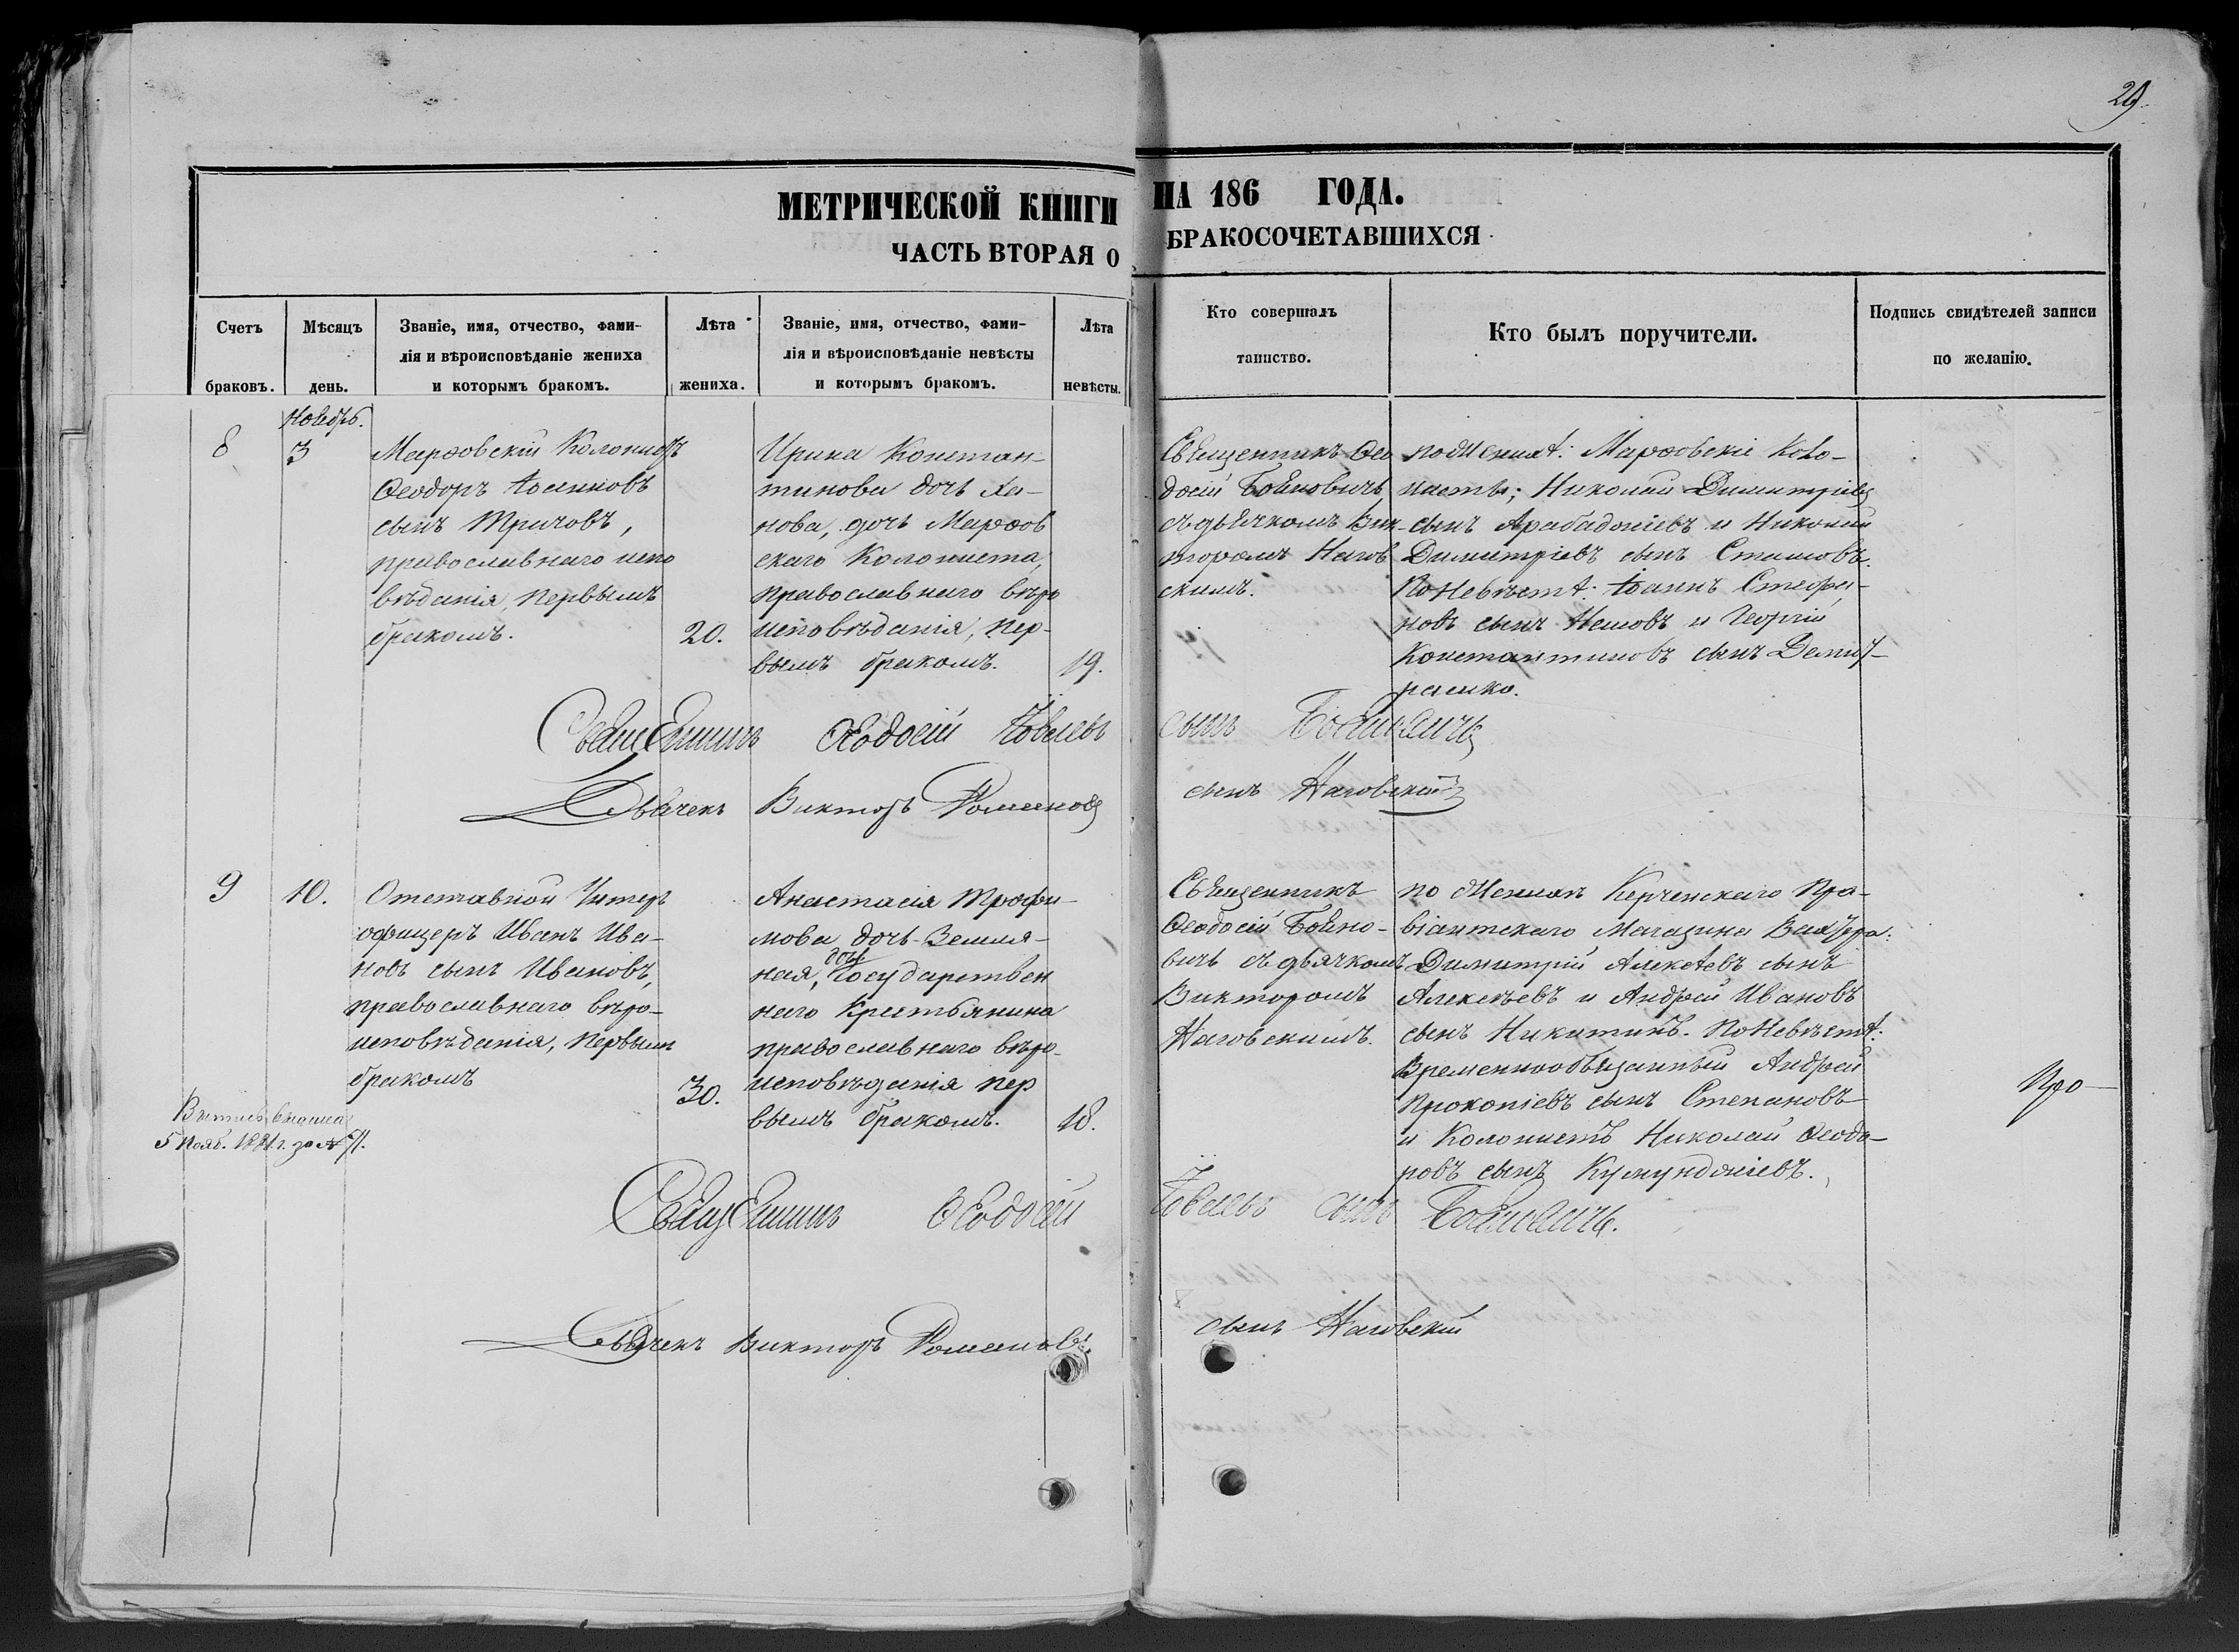 29.
МЕТРИЧЕСКОЙ КНИГИ НА 186 ГОДА.
ЧАСТЬ ВТОРАЯ О БРАКОСОЧЕТАВШИХСЯ
Счетъ
браковъ.
Мѣсяцъ
день.
Званіе, имя, отчество, фами-
лія и вѣроисповѣданіе жениха
и которымъ бракомъ.
Лѣта
жениха.
Званіе, имя, отчество, фами-
лія и вѣроисповѣданіе невѣсты
и которымъ бракомъ.
Лѣта
невѣсты.
Кто совершалъ
таинство.
Кто былъ поручители.
Подпись свидѣтелей записи
по желанію.
8
Ноябрь.
3
Марфовскій Колонистъ
Ѳеодоръ
сынъ
православнаго испо
вѣданія, первымъ
бракомъ.
20.
Ирина Констан-
тинова дочь
нова, дочь Марфов
скаго Колониста,
православнаго вѣро
исповѣданія, пер-
вымъ бракомъ.
19.
Священникъ Ѳео
досій Боѣновичъ
съ дьячкомъ Вик-
торомъ Нагов
скимъ.
по Женихѣ: Марфовскіе Коло-
нисты; Николай Димитріевъ
сынъ Арабаджіевъ и Николай
Димитріевъ сынъ
По Невѣстѣ: Іоаннъ Стефа-
новъ сынъ и Георгій
Константиновъ сынъ
Священникъ Ѳеодосій сынъ Боѣновичъ
Дьячекъ Викторъ Романовъ сынъ Наговскій
9
10.
Отставной Унтеръ
офицеръ Иванъ Ива-
новъ сынъ Ивановъ,
православнаго вѣро-
исповѣданія, первымъ
бракомъ
30.
Анастасія Трофи-
мова дочь Земля-
ная, дочь Государствен
наго Крестьянина
православнаго вѣро-
исповѣданія пер
вымъ бракомъ.
18.
Священникъ
Ѳеодосій Боѣно-
вичъ съ дьячкомъ
Викторомъ
Наговскимъ.
по Женихѣ Керченскаго Про-
віантскаго Магазина
Димитрій Алексѣевъ сынъ
Алексѣевъ и Андрей Ивановъ
сынъ Никитинъ. По Невѣстѣ:
Временнообязанный Андрей
Прокопіевъ сынъ Степановъ
и Колонистъ Николай Ѳеодо-
ровъ сынъ Кумунджіевъ.
Про-
5 Нояб. 1881 г. за №
Священникъ Ѳеодосій сынъ Боѣновичъ.
Дьячекъ Викторъ Романовъ сынъ Наговскій